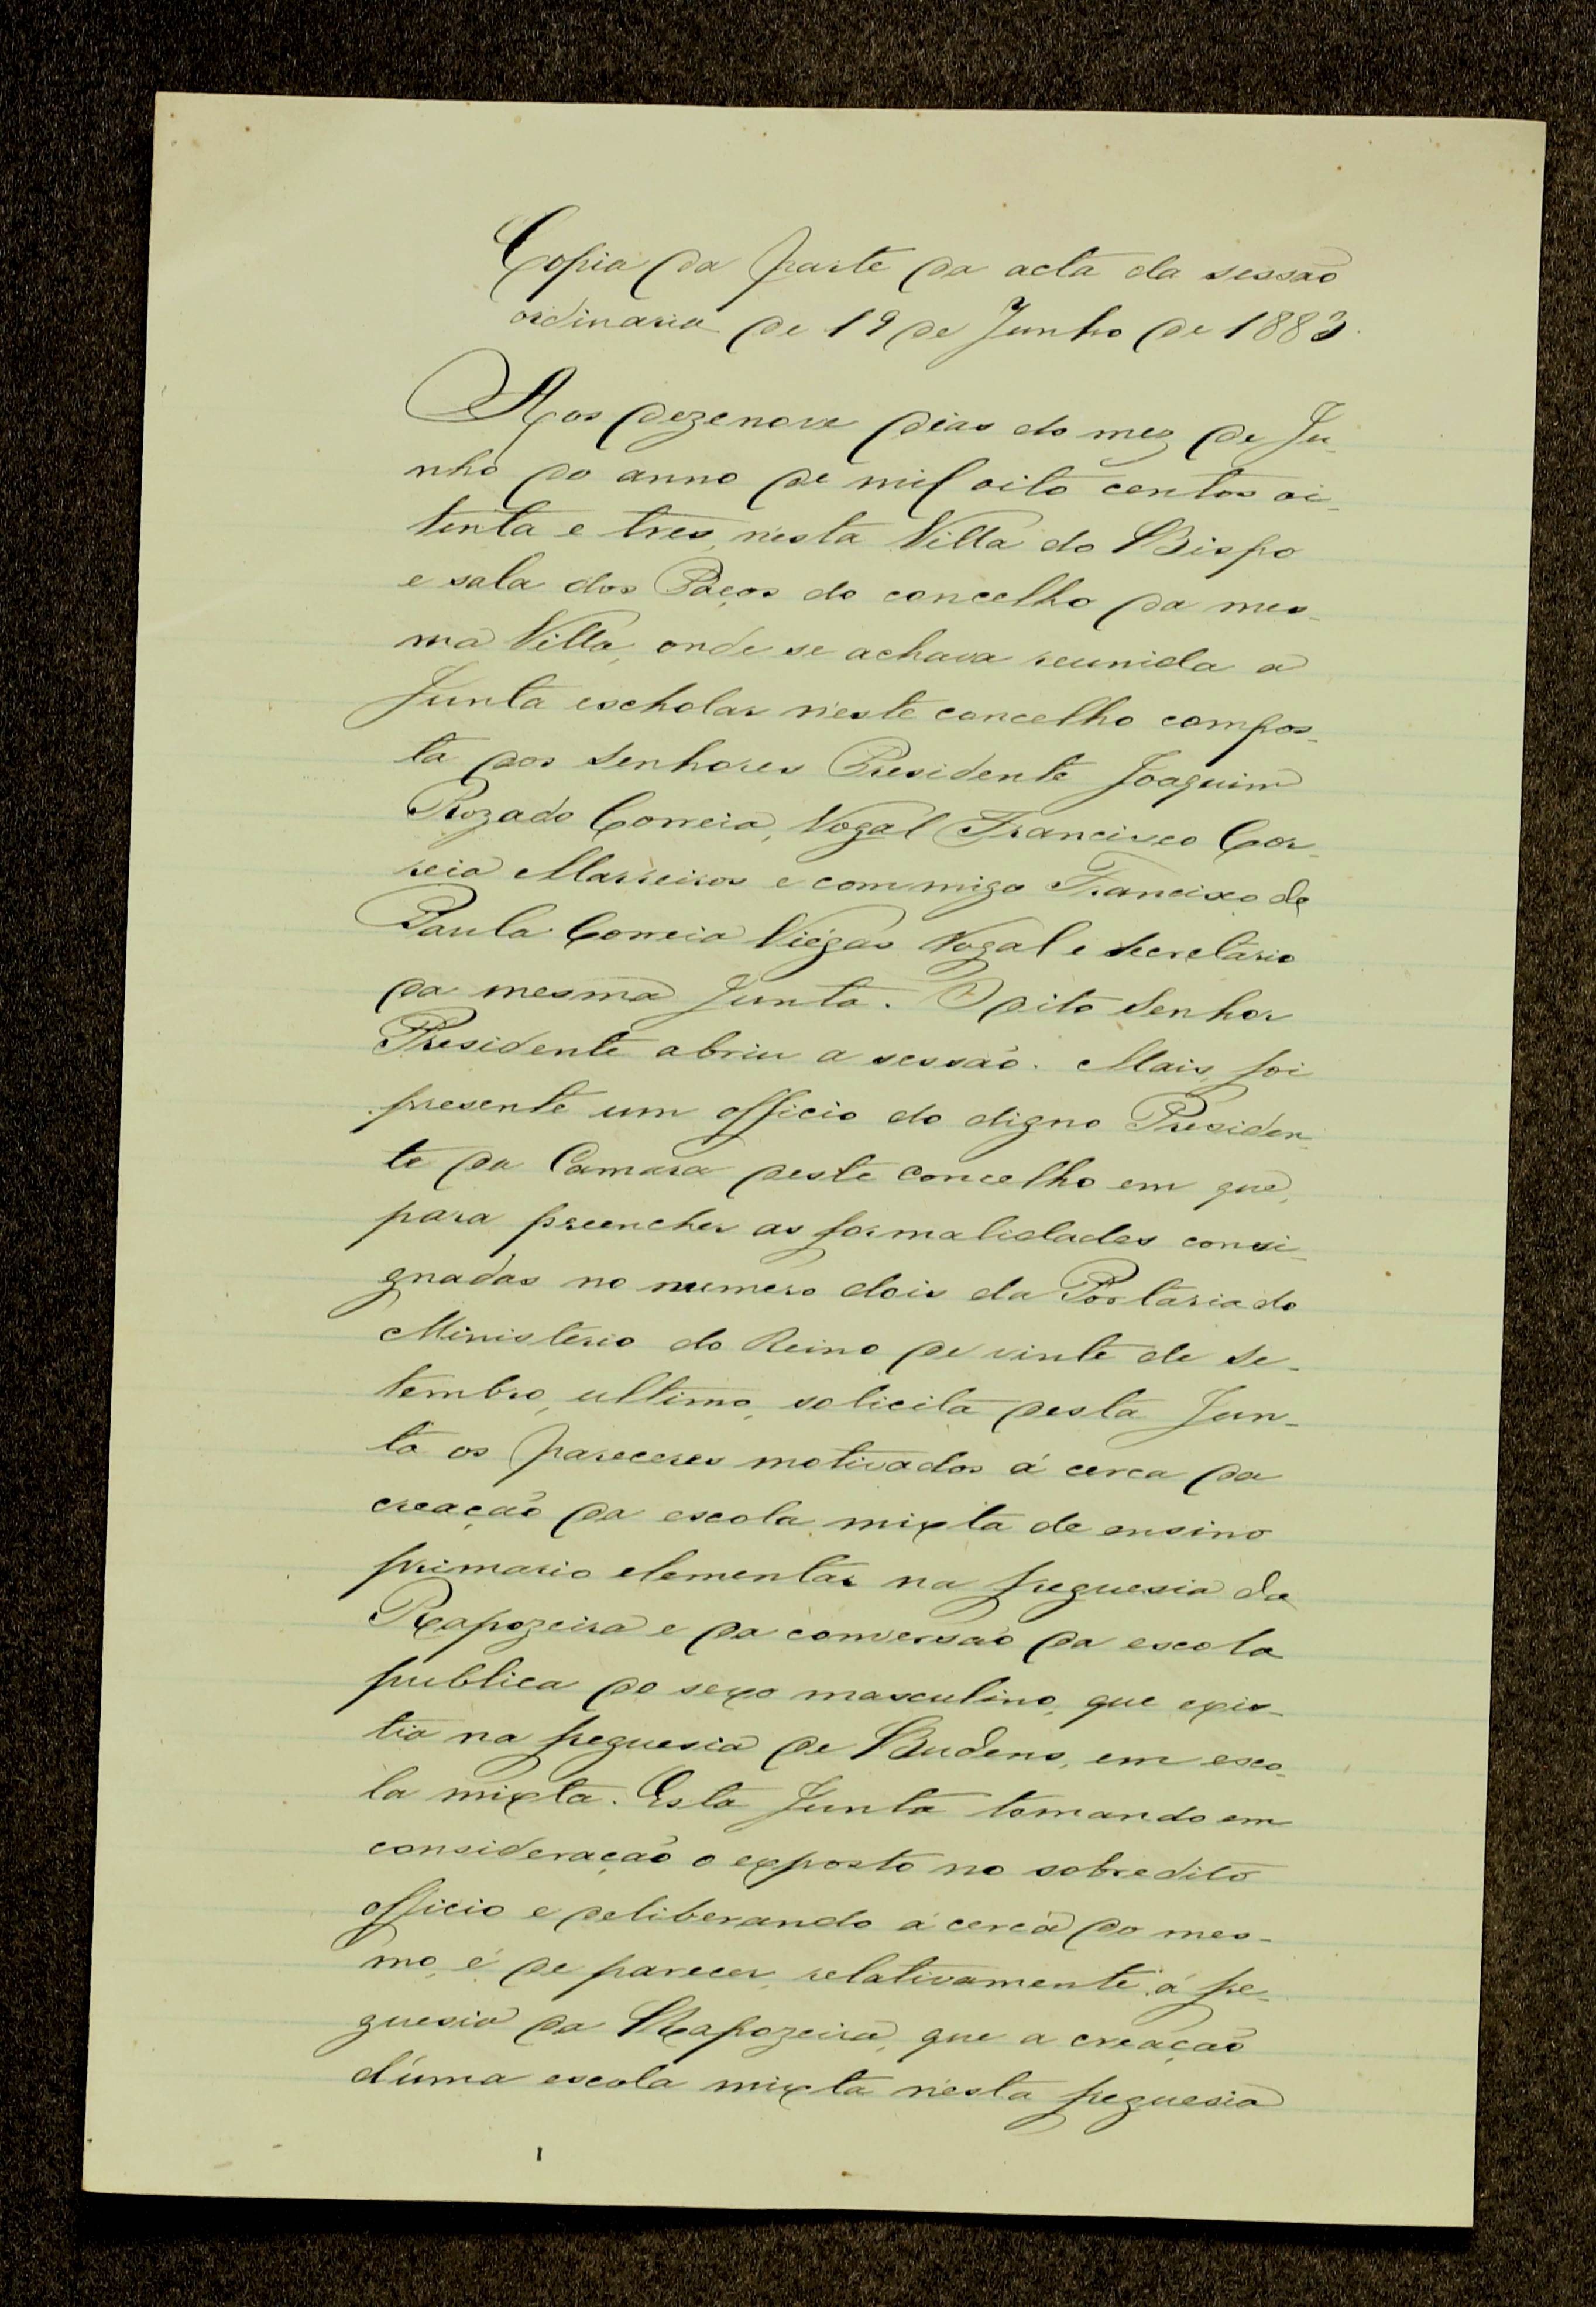 Copia da parte da acta da sessão
ordinaria de 19 de Junho de 1883.
Aos dezenove dias do mez de Ju-
nho do anno de mil oito centos oi-
tenta e tres, n'esta Villa do Bispo
e sala dos Paços do concelho da mes-
ma Villa, onde se achava reunida a
Junta escholar n'este concelho compos-
ta dos Senhores Presidente Joaquim
Rozado Correia, Vogal Francisco Cor-
reia Marreiros e commigo Francisco de
Paula Correia Viégas Vogal e Secretario
da mesma Junta. O dito Senhor
Presidente abriu a sessão. Mais foi
presente um officio do digno Presiden-
te da Camara deste concelho em que,
para preencher as formalidades consi-
gnadas no numero dois da Portaria do
Ministerio do Reino de vinte de Se-
tembro, ultimo, solicita desta Jun-
ta os pareceres motivados á cerca da
creação da escola mixta de ensino
primario elementar na freguesia da
Rapozeira e da conversão da escola
publica do sexo masculino, que exis-
tia na freguesia de Budens, em esco-
la mixta. Esta Junta tomando em
consideração o exposto no sobredito
officio e deliberando á cerca do mes-
mo, é de parecer, relativamente á fre-
guesia da Rapozeira, que a creação
d'uma escola mixta n'esta freguesia